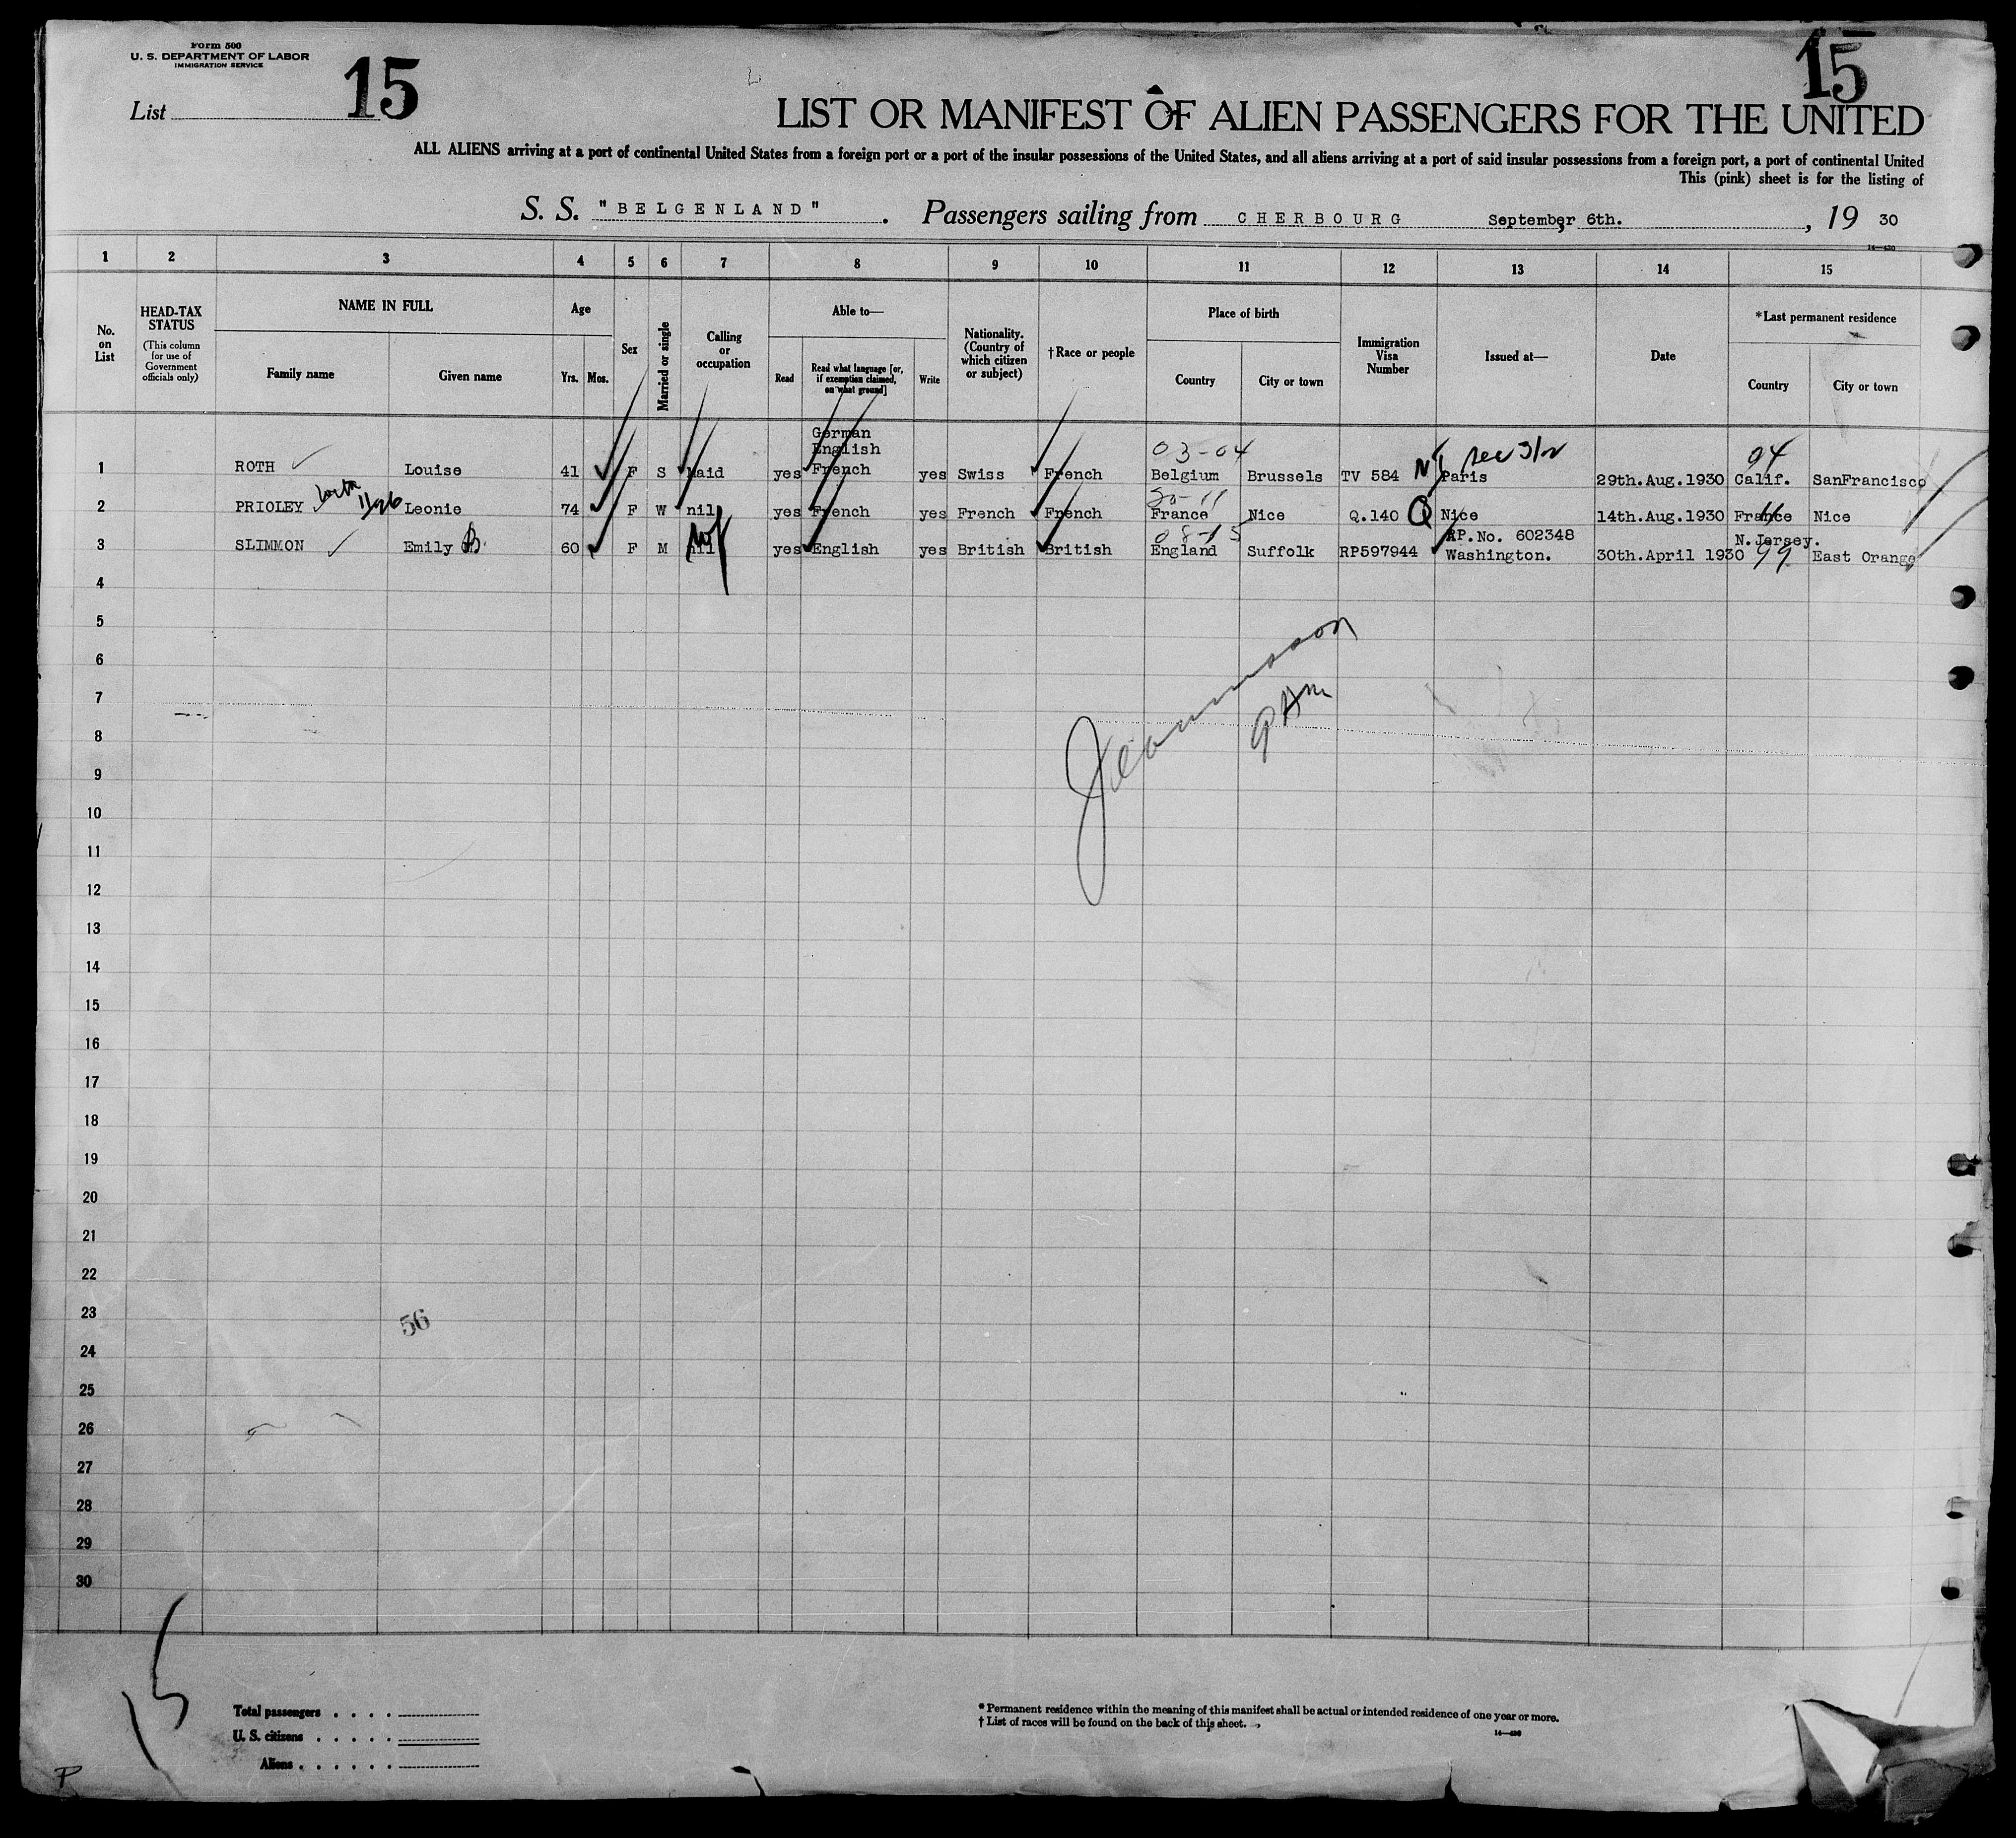 Form 500
U. S. DEPARTMENT OF LABOR
IMMIGRATION SERVICE
List 15
15
LIST OR MANIFEST OF ALIEN PASSENGERS FOR THE UNITED
ALL ALIENS arriving at a port of continental United States from a foreign port or a port of the insular possessions of the United States, and all aliens arriving at a port of said insular possessions from a foreign port, a port of continental United
This (pink) sheet is for the listing of
S. S. "BELGENLAND". Passengers sailing from CHERBOURG September 6th., 19 30
14—430
1 2 3 4 5 6 7 8 9 10 11 12 13 14 15
No. on List
HEAD-TAX STATUS
(This column for use of Government officials only)
NAME IN FULL
Family name
Given name
Age
Yrs. Mos.
Sex
Married or single
Calling or occupation
Able to—
Read
Read what language [or, if exemption claimed, on what ground]
Write
Nationality. (Country of which citizen or subject)
†Race or people
Place of birth
Country
City or town
Immigration Visa Number
Issued at—
Date
*Last permanent residence
Country
City or town
03-04 sec 3/2 94
1 ROTH Louise 41 F S Maid yes German English French yes Swiss French Belgium Brussels TV 584 Paris 29th.Aug.1930 Calif. SanFrancisco
2 PRIOLEY Leonie 74 F W nil yes French yes French French France Nice Q.140 Q Nice 14th.Aug.1930 France Nice
08-15
3 SLIMMON Emily B. 60 F M nil yes English yes British British England Suffolk RP597944 RP.No. 602348 Washington. 30th.April 1930 N.Jersey. 99 East Orange
4
5
6
7
8
9
10
11
12
13
14
15
16
17
18
19
20
21
22
23
56
24
25
26
27
28
29
30
15
Total passengers
U. S. citizens
Aliens
* Permanent residence within the meaning of this manifest shall be actual or intended residence of one year or more.
† List of races will be found on the back of this sheet.
14—430
P